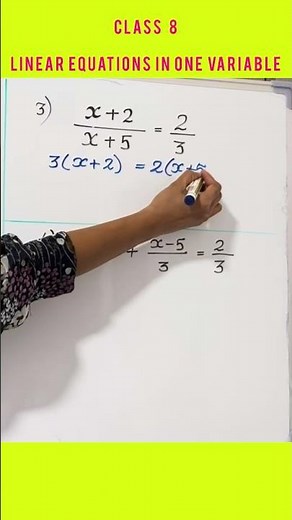 CLASS 8
LINEAR EQUATIONS IN ONE VARIABLE
3) x+2/x+5 = 2/3
3(x+2) = 2(x+5
+ x-5/3 = 2/3